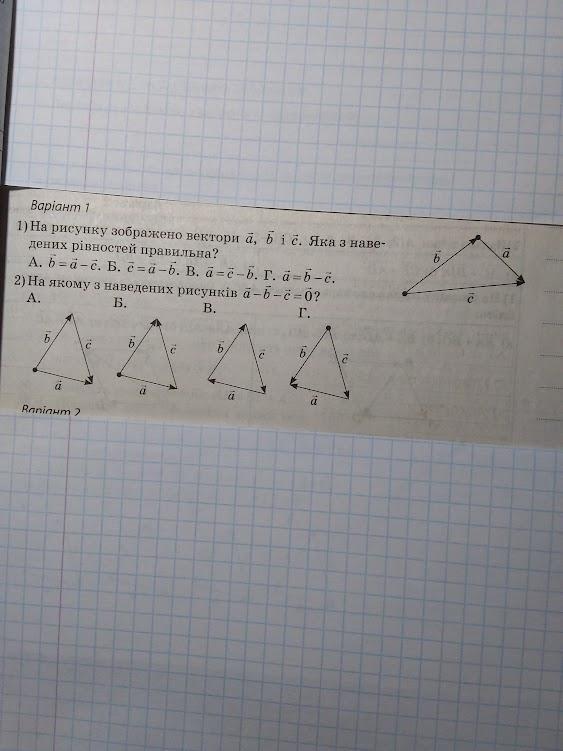 Варіант 1
1) На рисунку зображено вектори a⃗, b⃗ і c⃗. Яка з наве-
дених рівностей правильна?
А. b⃗ = a⃗ − c⃗. Б. c⃗ = a⃗ − b⃗. В. a⃗ = c⃗ − b⃗. Г. a⃗ = b⃗ − c⃗.
2) На якому з наведених рисунків a⃗ − b⃗ − c⃗ = 0⃗?
А. Б. В. Г.
b⃗ a⃗ c⃗
b⃗ c⃗ a⃗
b⃗ c⃗ a⃗
b⃗ c⃗ a⃗
b⃗ c⃗ a⃗
Варіант 2